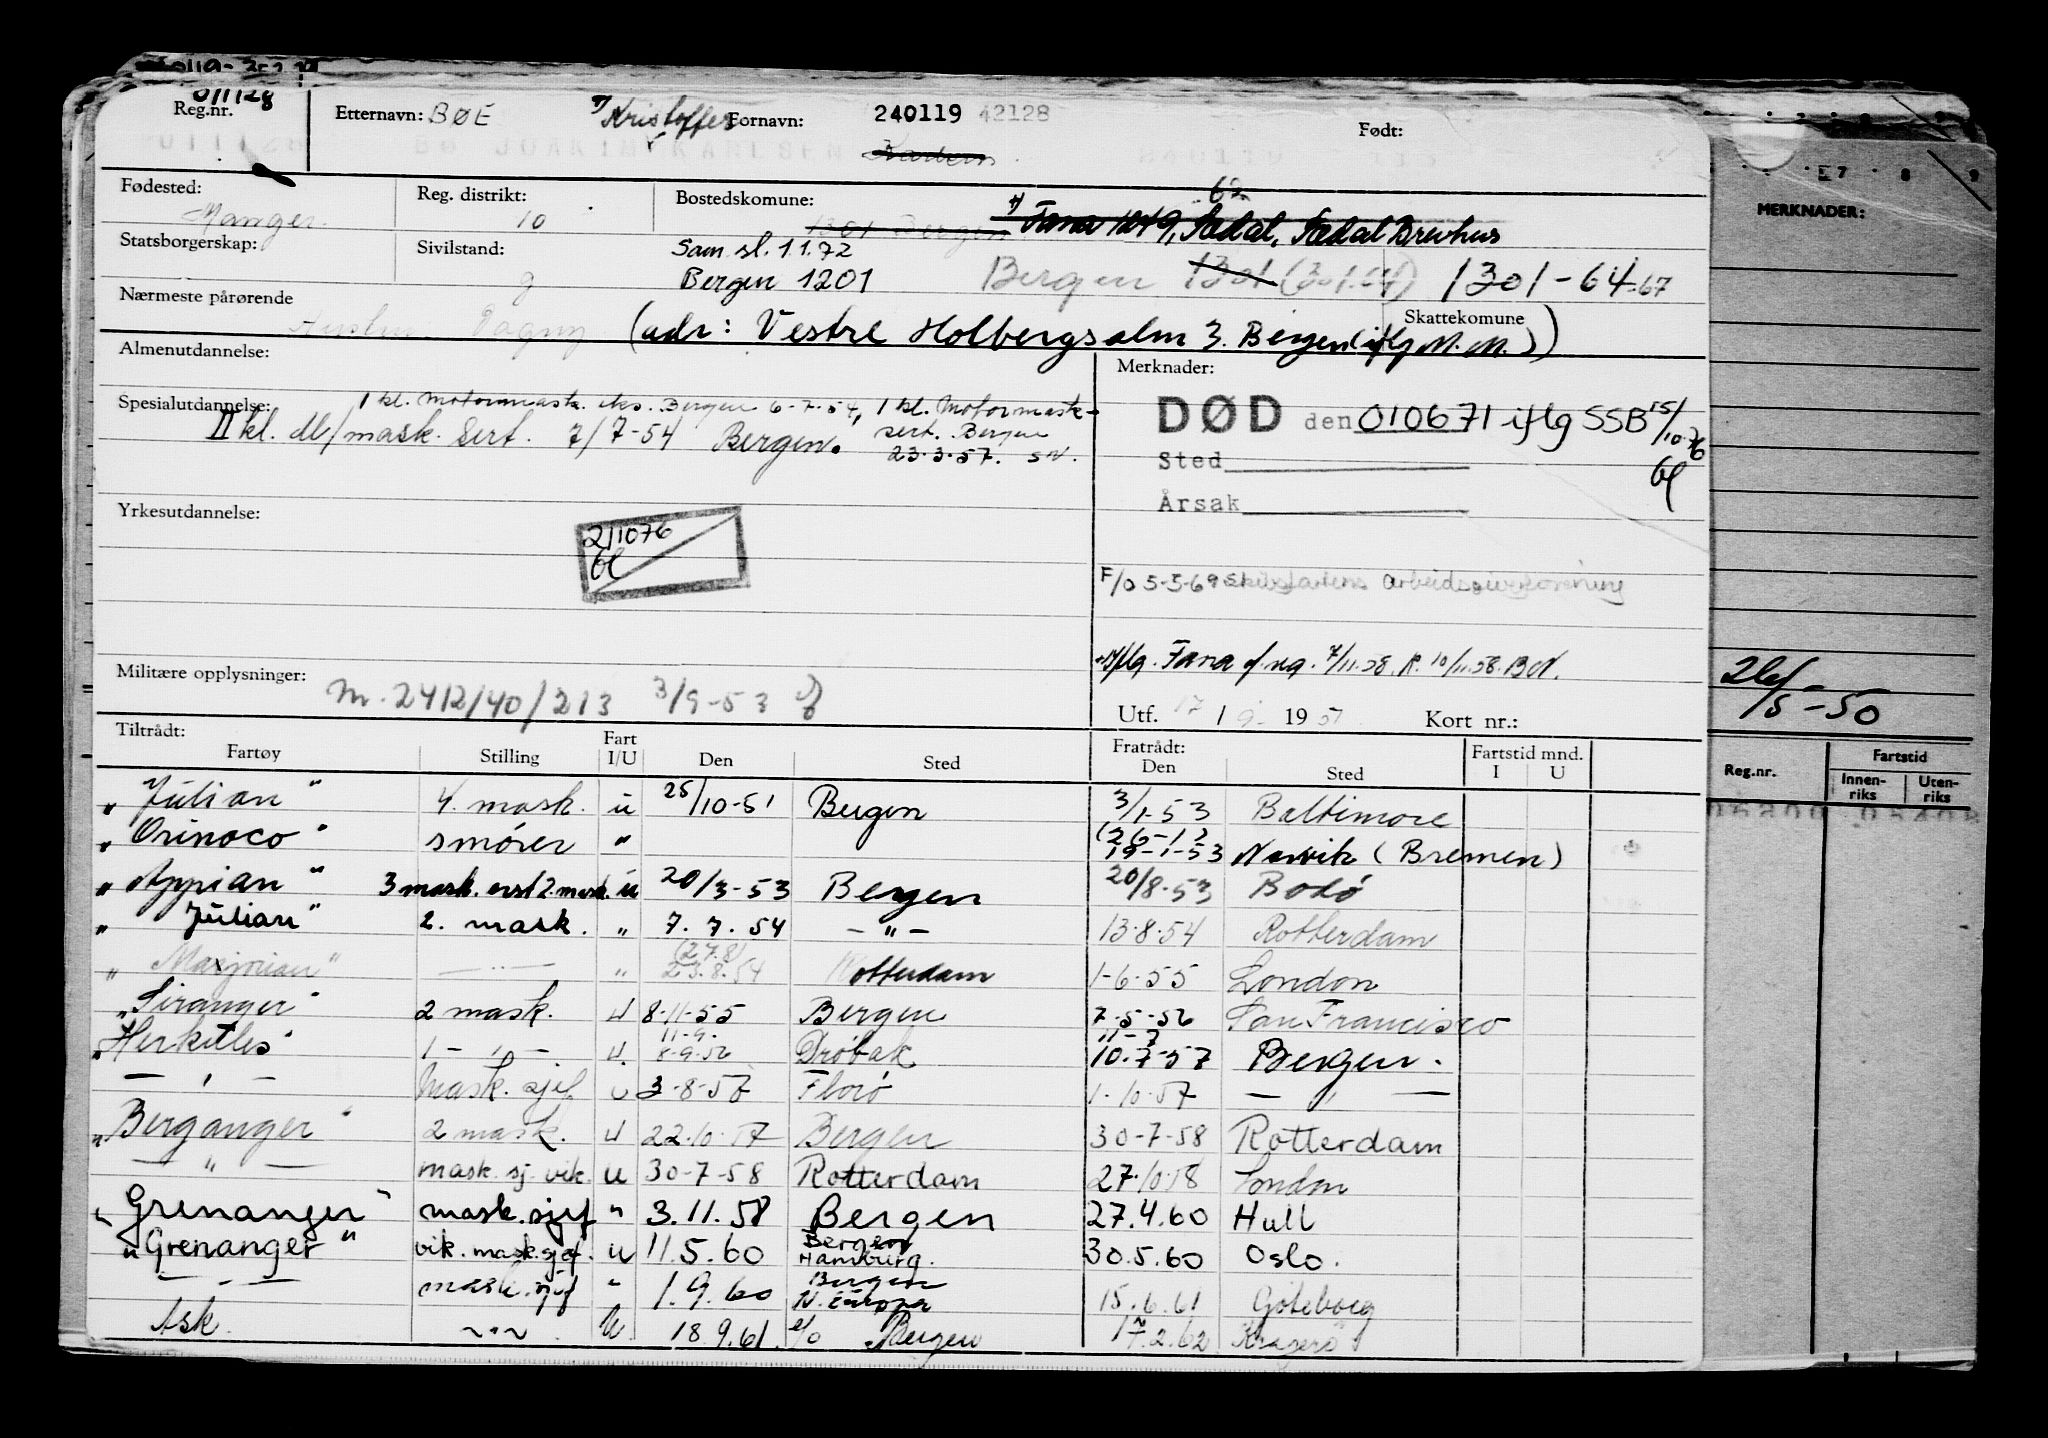 011128
Reg.nr. Etternavn: BØE Kristoffer Fornavn: 240119 42128 Født:
Fødested: Manger Reg. distrikt: 10 Bostedskommune: 1301 Bergen Fana 1249, Sædal, Sædal Brevhus
Statsborgerskap: Sivilstand: g Sam sl. 1.1.72
Bergen 1201 Bergen 1301 (301.64) 1301-64-67
MERKNADER:
Nærmeste pårørende Dagny (adr: Vestre Holbergsalm 3. Bergen (iflg M.M.))
Skattekomune
Almenutdannelse: Merknader:
Spesialutdannelse: 1 kl. motormask. eks. Bergen 6-7-54, 1 kl. Motormask-
II kl. dl/mask. Sert. 7/7-54 Bergen. sert. Bergen
23.3.57. SN.
DØD den 010671 iflg SSB 15/10.76
Sted
Bl
Årsak
Yrkesutdannelse:
211076
Bl
F/O 5-5-69 Skibsfartens arbeidsgiverforening
Iflg. Fana f.reg. 7/11.58. R. 10/11.58. BN.
Militære opplysninger: M. 2412/40/213 3/9-53
26/5-50
Utf. 17/9 1951 Kort nr.:
Tiltrådt: Fratrådt: Fartstid mnd.
Fartøy Stilling Fart I/U Den Sted Den Sted I U
Reg.nr. Fartstid
Innenriks Utenriks
" Julian " 4. mask. u 25/10-51 Bergen 3/1-53 Baltimore
" Orinoco " smører " (26-12 19-1-53 Narvik (Bremen)
" Appian " 3 mask. erst 2. mask. u 20/3-53 Bergen 20/8-53 Bodø
" Julian " 2. mask. " 7.7.54 — " — 13.8.54 Rotterdam
" Marjorian " — " — " (27.8) 23.8.54 Rotterdam 1-6-55 London
" Siranger " 2 mask. u 8-11-55 Bergen 7-5-56 San Francisco
" Herkules " 1 — " — u. 11-9- 8-9-56 Drøbak 11-7 10.7-57 Bergen.
— " — Mask. sjef. u 3-8-57 Florø 1-10-57 — " —
" Berganger " 2 mask. u 22.10.57 Bergen 30-7-58 Rotterdam
— " — mask. sj. vik. u 30-7-58 Rotterdam 27.10.58 London
" Grenanger " mask. sjef " 3.11.58 Bergen 27.4.60 Hull
" Grenanger " vik. mask. sjef. u 11.5.60 Bergen Hamburg. 30.5.60 Oslo.
— " — mask. sjef " 1.9.60 Bergen N. Europa 15.6.61 Göteborg
Ask. ~ " ~ U 18.9.61. e/o Bergen 17.2.62 Kragerø